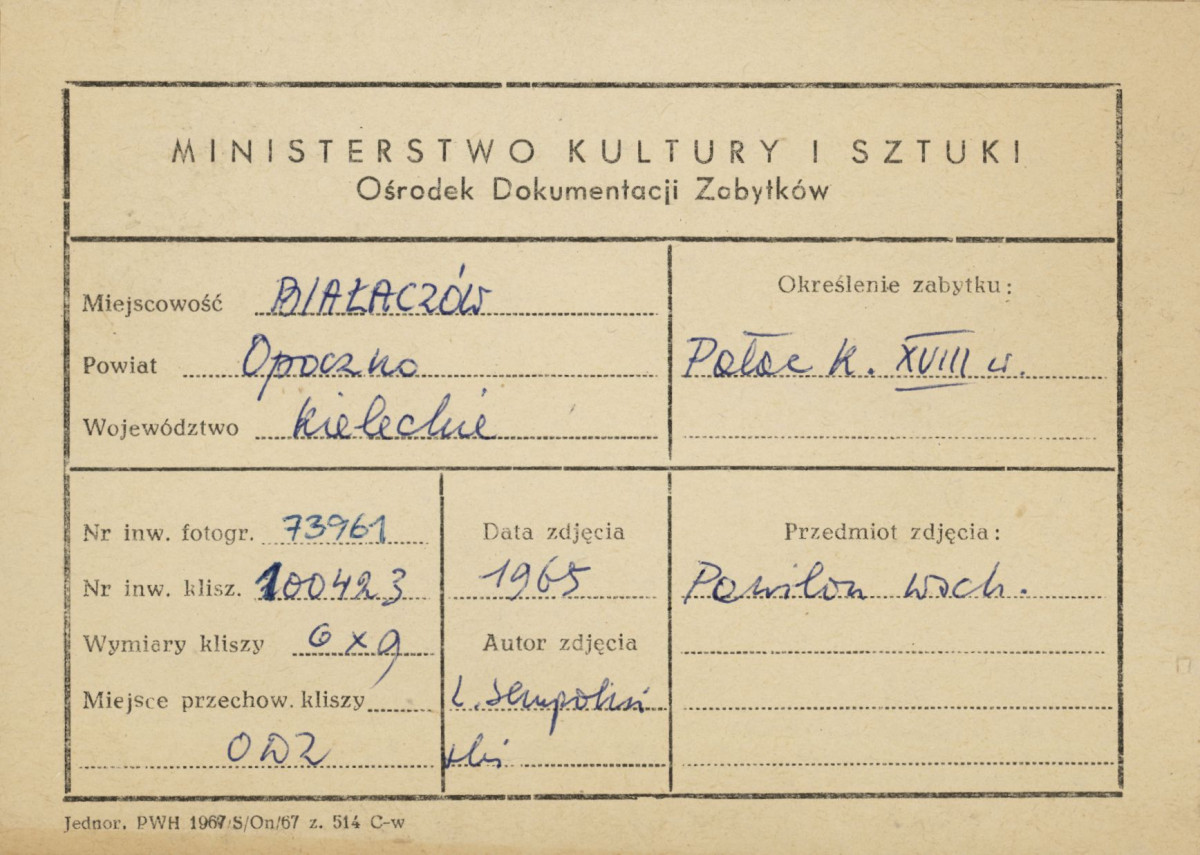 MINISTERSTWO KULTURY I SZTUKI
Ośrodek Dokumentacji Zabytków
Miejscowość BIAŁACZÓW
Powiat Opoczno
Województwo kieleckie
Określenie zabytku:
Pałac k. XVIII w.
Nr inw. fotogr. 73961
Nr inw. klisz. 100423
Wymiary kliszy 6x9
Miejsce przechow. kliszy
ODZ
Data zdjęcia
1965
Autor zdjęcia
L. Sempoliń
ski
Przedmiot zdjęcia:
Pawilon wsch.
Jednor. PWH 1967/S/On/67 z. 514 C-w